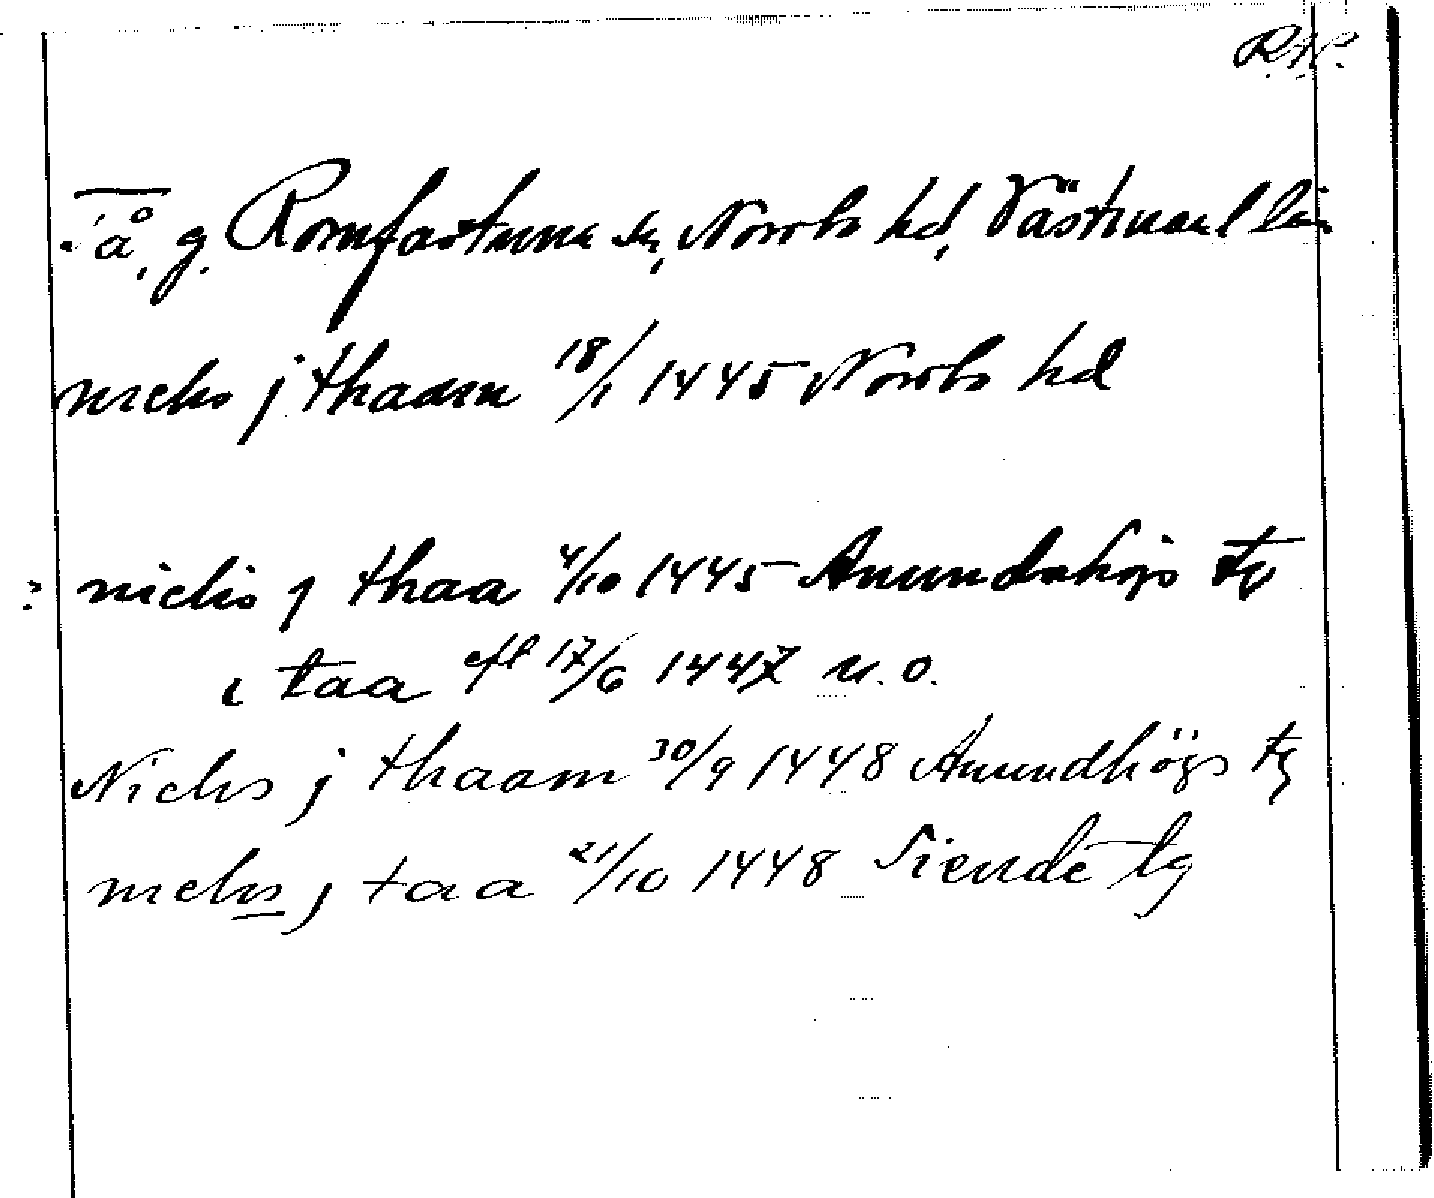 R.A.P.
Tå, g. Romfartuna sn, Norrbo hd, Västmanl län
niclis j thaam 18/1 1445 Norrbo hd
niclis j thaa 4/10 1445 Anundahögs tg
i taa afl 17/6 1447 u. o.
Niclis j thaam 30/9 1448 Anundhögs tg
niclis j taa 21/10 1448 Siende tg